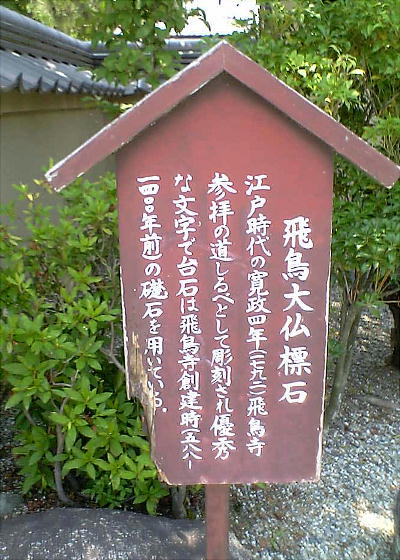 飛鳥大仏標石
江戸時代の寛政四年(一七九二)飛鳥寺
参拝の道しるべとして彫刻され優秀
な文字で台石は飛鳥寺創建時(五八八
一四〇〇年前)の礎石を用いている.